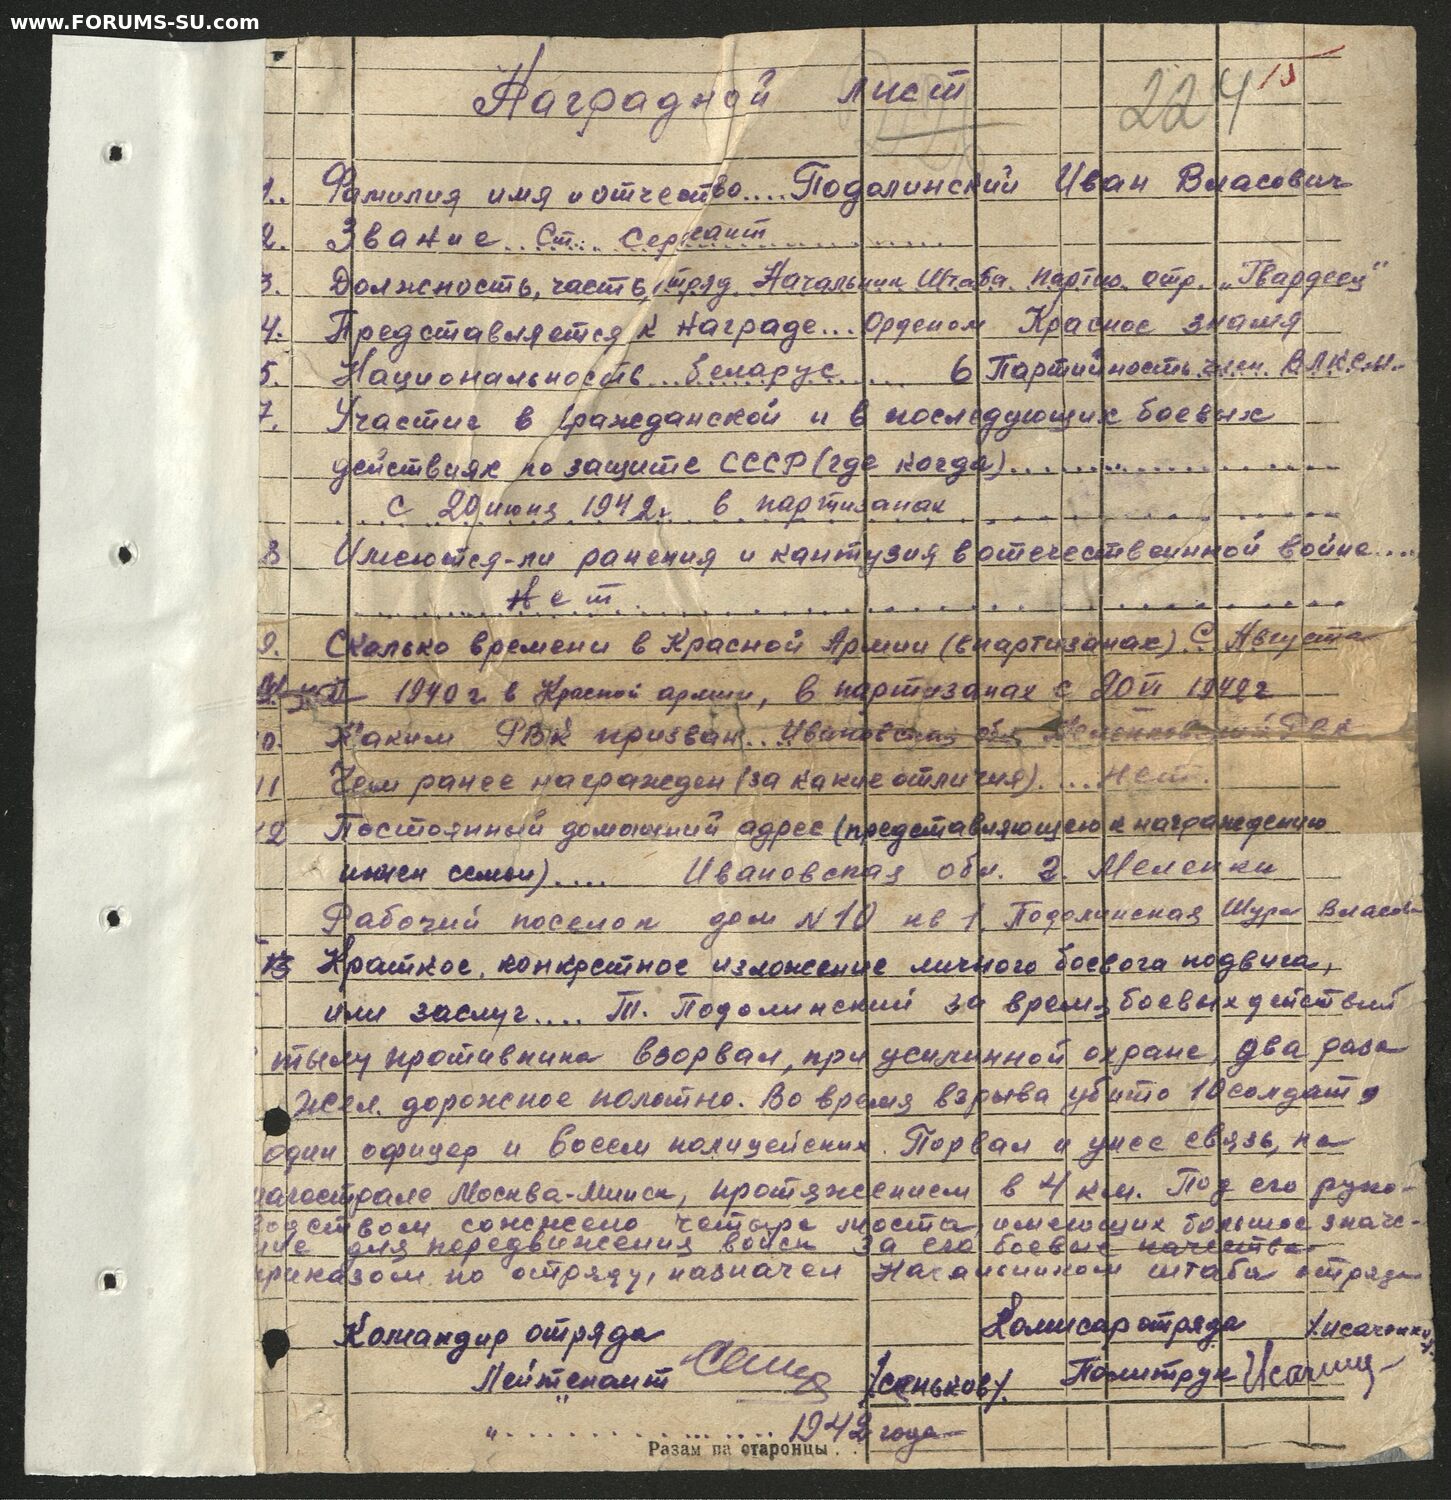 www.FORUMS-SU.com
Наградной лист
224 15
1.. Фамилия имя и отчество.... Подолинский Иван Власович
2. Звание.. Ст. Сержант
3. Должность, часть, отряд. Начальник Штаба партиз. отр. „Гвардеец"
4. Представляется к награде... Орденом Красное знамя
5. Национальность.. беларус..... 6 Партийность член. ВЛКСМ.
7. Участие в гражданской и в последующих боевых
действиях по защите СССР (где когда)....
с 20 июня 1942г. в партизанах
8 Имеются-ли ранения и кантузия в отечественной войне....
Нет
9. Сколько времени в Красной Армии (в партизанах). С Августа
1940 г. в Красной армии, в партизанах с 1942 г
10. Каким РВК призван.. Ивановская обл. Меленковский РВК
11 Чем ранее награжден (за какие отличия).... Нет.
12 Постоянный домашний адрес (представляющею к награждению
и семьи).... Ивановская обл. г. Меленки
Рабочий поселок дом N 10 кв 1. Подолинская Шура Власов
13 Краткое, конкретное изложение личного боевога подвига,
или заслуг.... Т. Подолинский за время боевых действий
тылу противника взорвал, при усилинной охране, два раза
жел. дорожное полотно. Во время взрыва убито 10 солдат,
один офицер и восем полицейских. Порвал и унес связь, на
магострале Москва-Минск, протяжением в 4 км. Под его руко-
водством сожжено четыре моста, имеющих большое значе-
ние для передвижения войск за его боевые качества
приказом по отряду, назначен Начальником штаба отряда
Командир отряда Комисар отряда /Исаченки/
Лейтенант /сеньков/. Политрук
„ " ......... 1942 года
Разам па старонцы . .